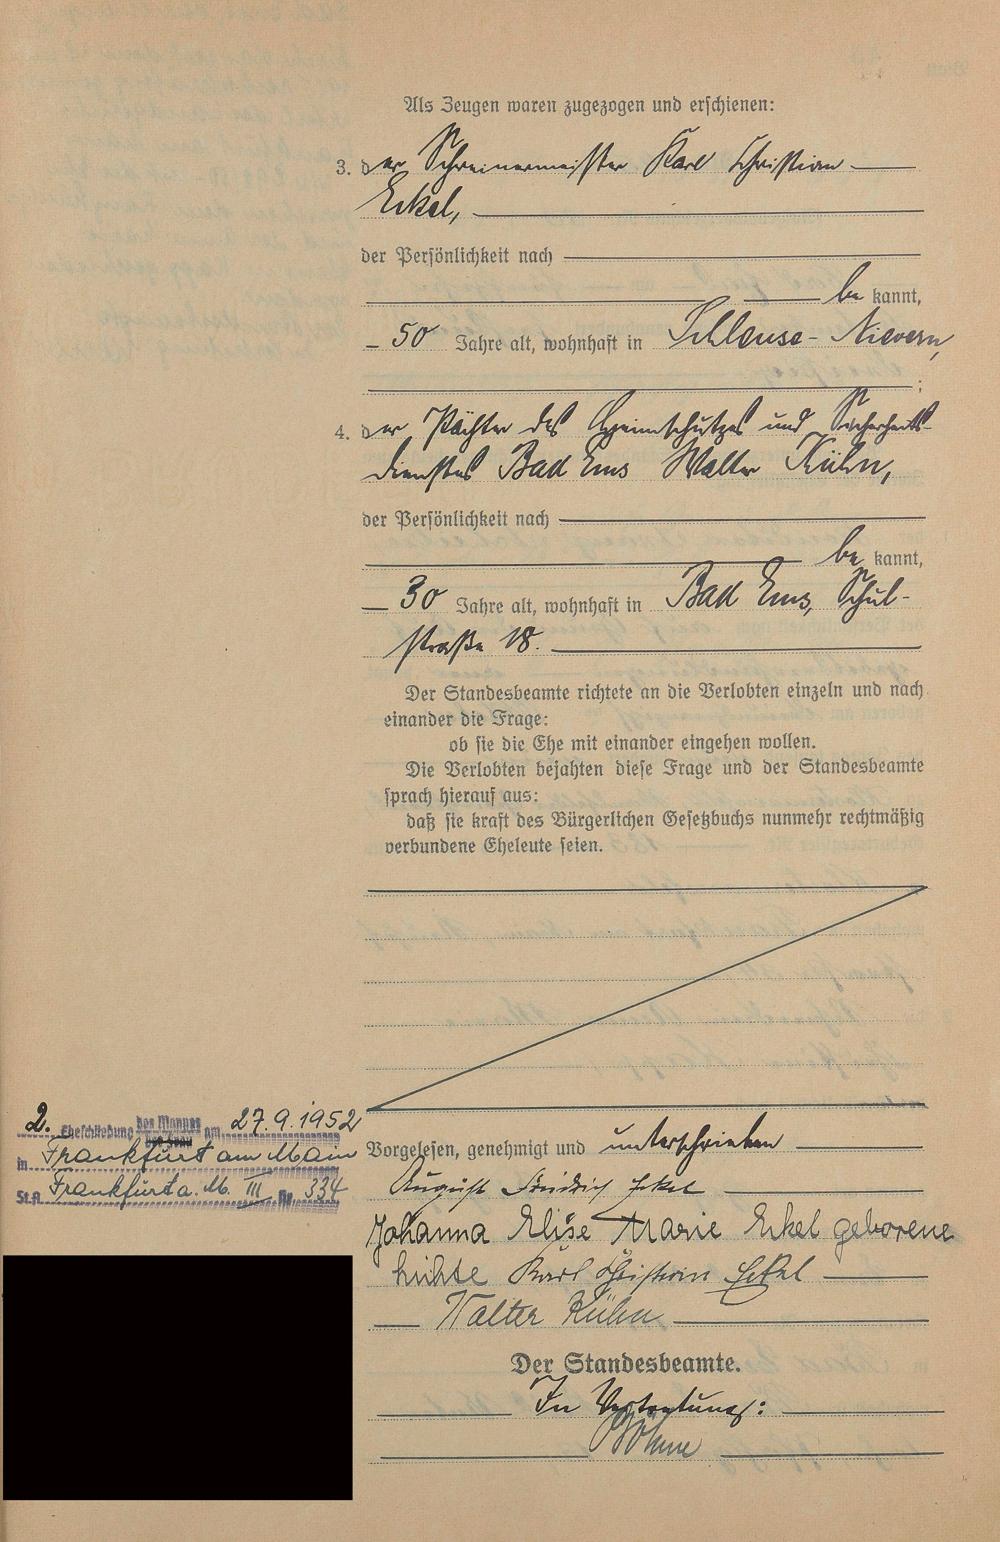 Als Zeugen waren zugezogen und erschienen:
3. der Schreinermeister Karl Christian
Eckel,
der Persönlichkeit nach
be kannt,
50 Jahre alt, wohnhaft in Schleuse-Nievern,
;
4. der Pächter des Heimschutzes und Sicherheits-
dienstes Bad Ems Walter Kühn,
der Persönlichkeit nach
be kannt,
30 Jahre alt, wohnhaft in Bad Ems, Schul-
straße 18.
Der Standesbeamte richtete an die Verlobten einzeln und nach
einander die Frage:
ob sie die Ehe mit einander eingehen wollen.
Die Verlobten bejahten diese Frage und der Standesbeamte
sprach hierauf aus:
daß sie kraft des Bürgerlichen Gesetzbuchs nunmehr rechtmäßig
verbundene Eheleute seien.
Vorgelesen, genehmigt und unterschrieben
August Friedrich Eckel
Johanna Elise Marie Eckel geborene
Karl Christian Eckel
Walter Kühn
Der Standesbeamte.
In Vertretung:
2. Eheschließung des Mannes am 27.9.1952
in Frankfurt am Main
St.A. Frankfurt a. M. III Nr. 334